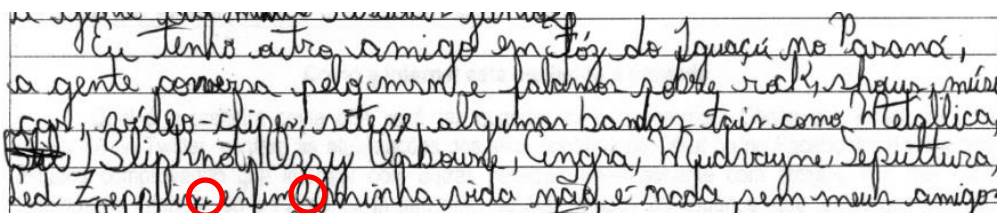 a gente
Eu tenho outro amigo em Fóz do Iguaçú no Paraná,
a gente conversa pelo msn e falamos sobre rock, shows, músi
cas, vídeo-clipes, sites e, algumas bandas tais como Metallica,
SlipKnot, Ozzy Osbourne, Angra, Mudvayne, Sepulttura,
Led Zepplin, enfim minha vida não é nada sem meus amigo